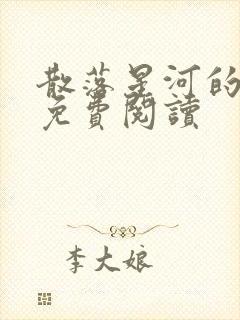 散落星河的
免費閱讀
李大娘